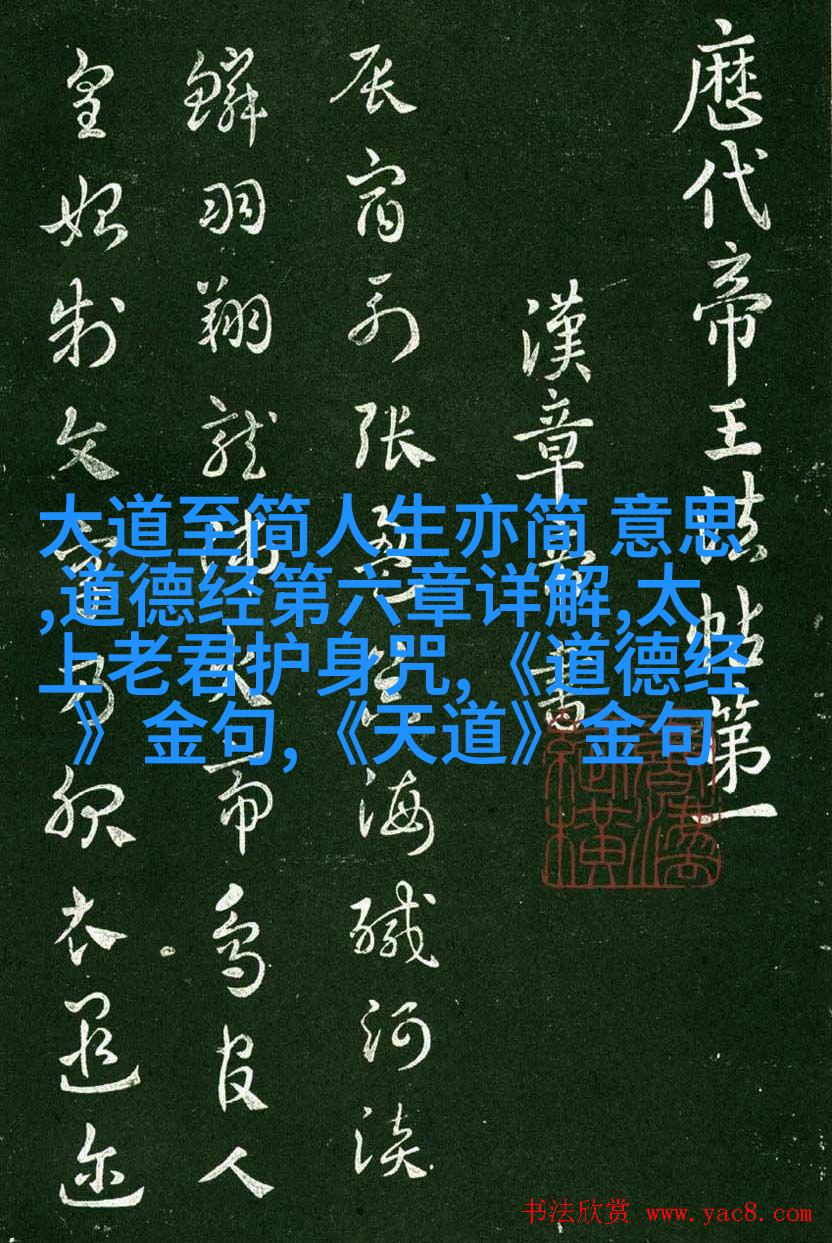 歷代帝王法帖第一
漢章帝書
辰宿列張海鹹河淡
鱗羽翔龍師火帝鳥官人
皇始制文字乃服衣遐邇
大道至简人生亦简 意思
,道德经第六章详解,太
上老君护身咒,《道德经
》金句,《天道》金句
书法欣赏 www.yac8.com